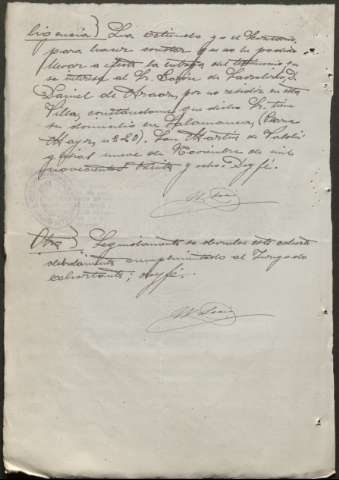 ligencia} La extiendo yo el Secretario
para hacer constar que no ha podido
llevar a efecto la entrega del testimonio en
el Sr. Barón de
Daniel de Araoz, por no residir en esta
Villa, constándome que dicho Sr. tiene
su domicilio en Salamanca, (Plaza
Mayor, n.º 20). San Martín de
nueve de Noviembre de mil
novecientos treinta y ocho. Doy fé.
Otra} Seguidamente se devuelve este exhorto
debidamente cumplimentado al Juzgado
exhortante; doy fé.